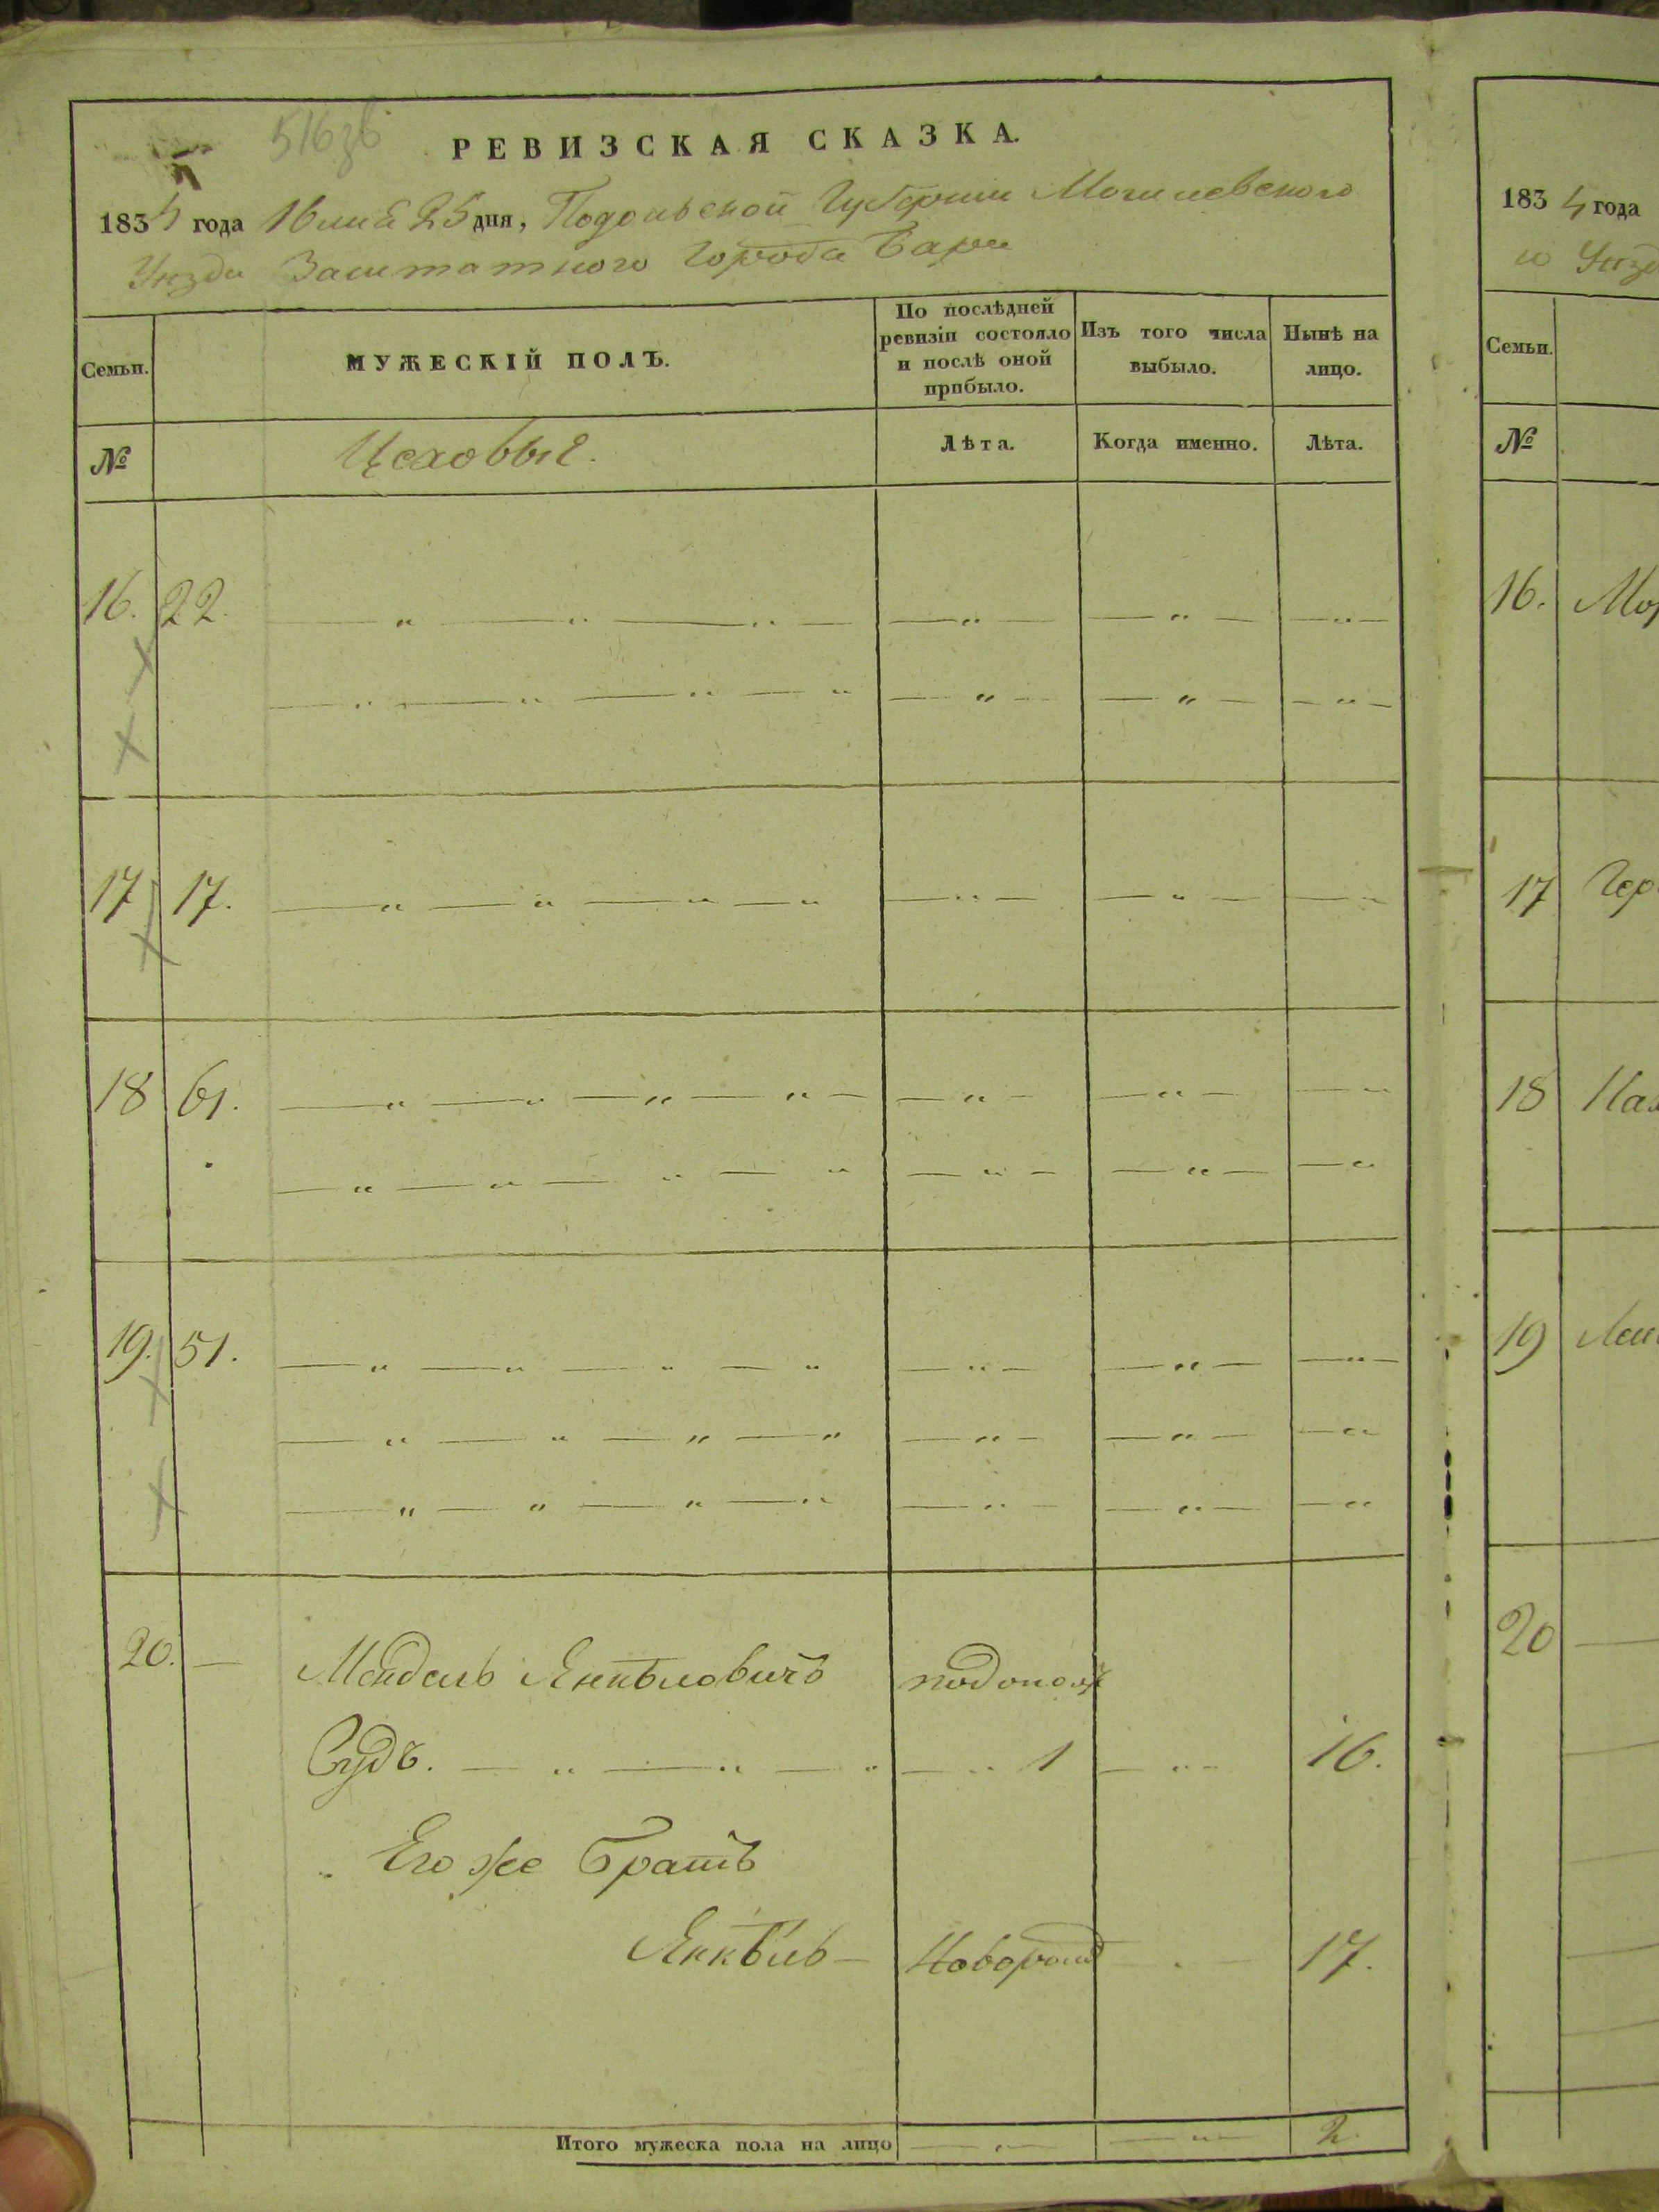 516зв
РЕВИЗСКАЯ СКАЗКА.
1834 года Іюля 25 дня, Подольской Губерніи Могилевского
Уезда Заштатного Города Бара
Семьи.
МУЖЕСКІЙ ПОЛЪ.
По послѣдней ревизіи состояло и послѣ оной прибыло.
Изъ того числа выбыло.
Нынѣ на лицо.
№
Цеховые.
Лѣта.
Когда именно.
Лѣта.
16. 22. — „ — „ — „ — — „ — — „ — — „ —
— „ — „ — „ — „ — „ — — „ — — „ —
17 17. — „ — „ — „ — „ — „ — — „ — — „
18 61. — „ — „ — „ — „ — — „ — — „ — — „
— „ — „ — „ — „ — „ — — „ — — „
19. 51. — „ — „ — „ — „ — „ — — „ — — „ —
— „ — „ — „ — „ — „ — — „ — — „
— „ — „ — „ — „ — „ — — „ — — „
20. — Мендель Янкѣловичъ
Судъ. — „ — „ — „ — „ 1 — „ — 16.
„ Его же братъ
Янкѣль — Новорожд — „ — 17.
Итого мужеска пола на лицо — „ — — „ — 2.
1834 года
Семьи.
№
16.
17
18
19
20 —